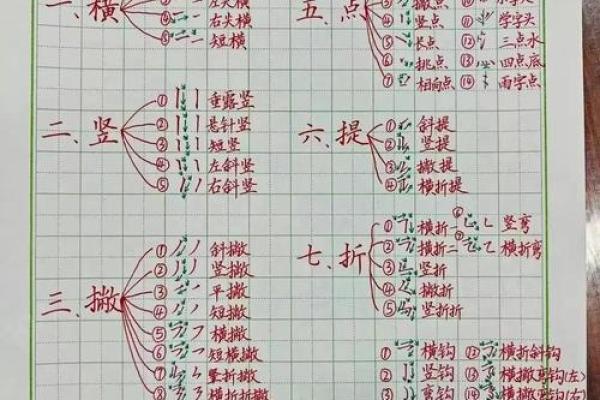 一、横
左尖横
④ 右尖横
⑤ 短横
二、竖
① 垂露竖
② 悬针竖
③ 短竖
④ 左斜竖
⑤ 右斜竖
三、撇
① 斜撇
② 竖撇
③ 平撇
④ 短撇
⑤ 横撇
⑥ 短横撇
⑦ 竖折撇
⑧ 横折折撇
五、点
撇点
④ 竖点
⑤ 长点
⑥ 挑点
⑦ 相向点
⑪ 学字头
⑫ 三点水
⑬ 四点底
⑭ 雨字点
六、提
① 斜提
② 竖提
③ 撇提
④ 横折提
七、折
① 横折一
② 横折二
③ 竖折
④ 撇折
⑤ 竖折折
⑥ 竖弯
⑦ 横折弯
① 横钩
② 竖钩
③ 弯钩
⑫ 横折斜钩
⑬ 横撇弯钩(左)
⑭ 横撇弯钩(右)